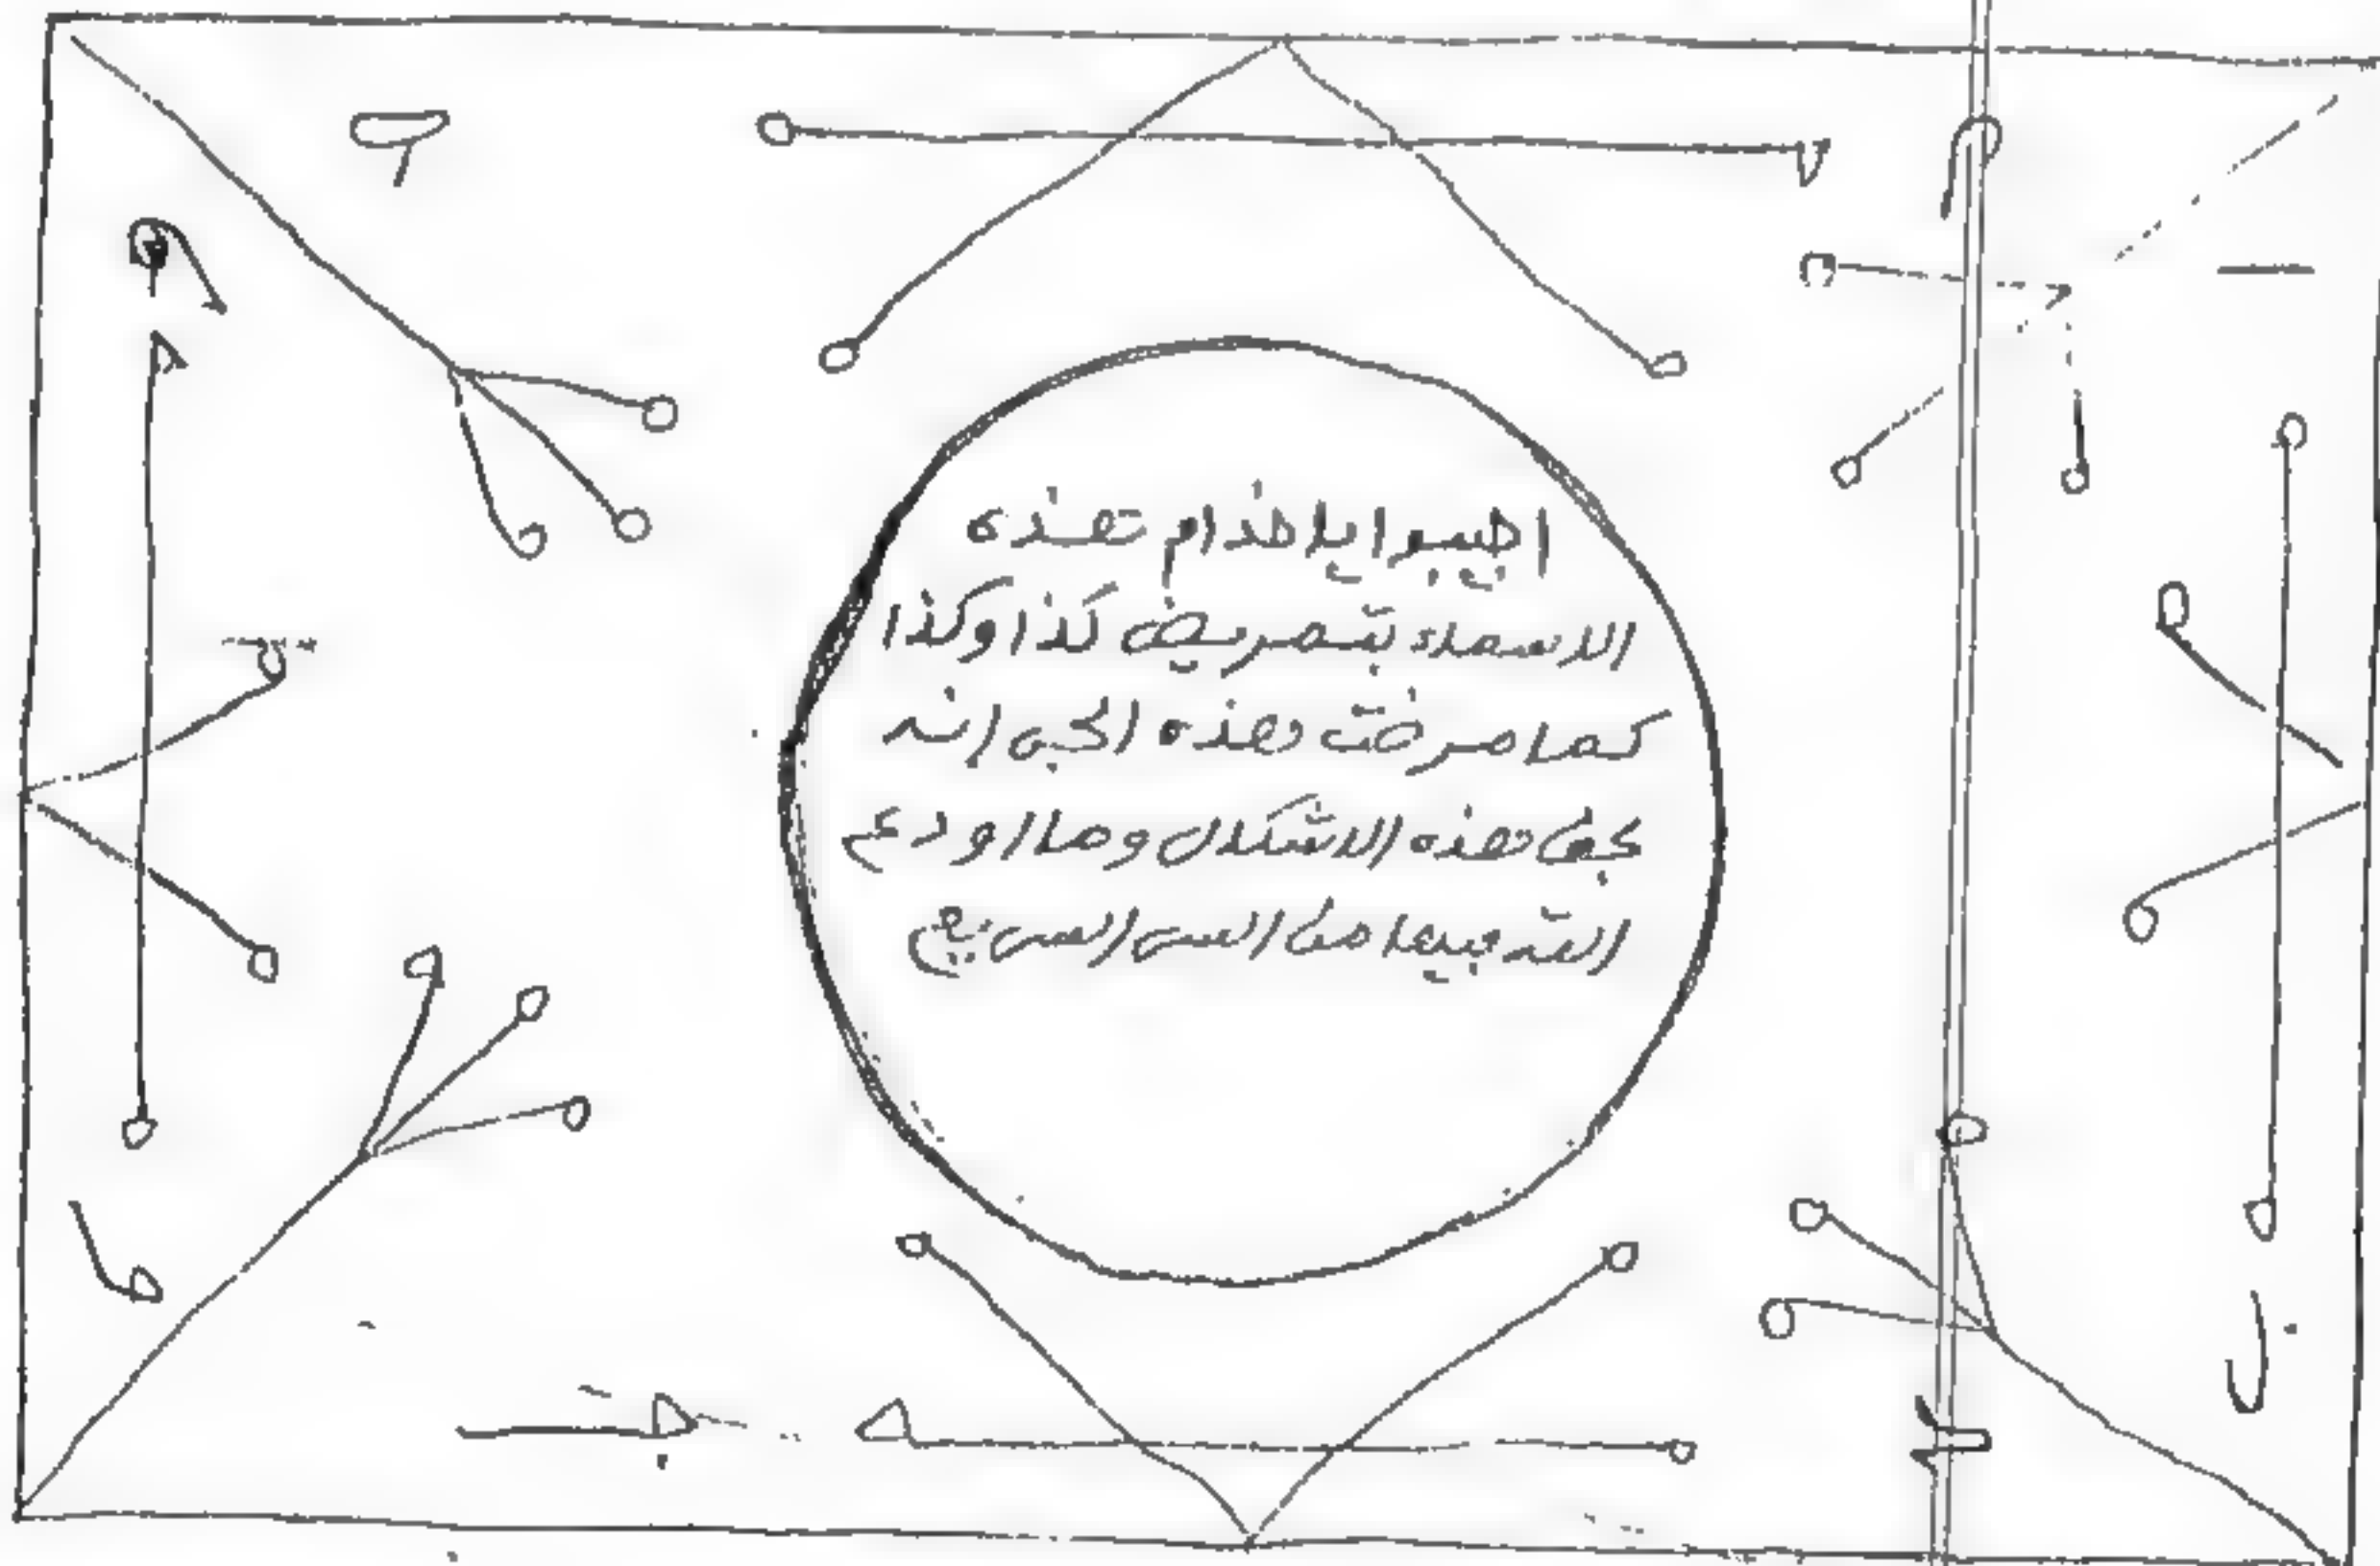 اجيبوا يا خدام هذه
الاسماء بتمريض كذا وكذا
كما مرضت هذه الجبانه
بحق هذه الاشكال وما اودع
الله فيها من السر السريع